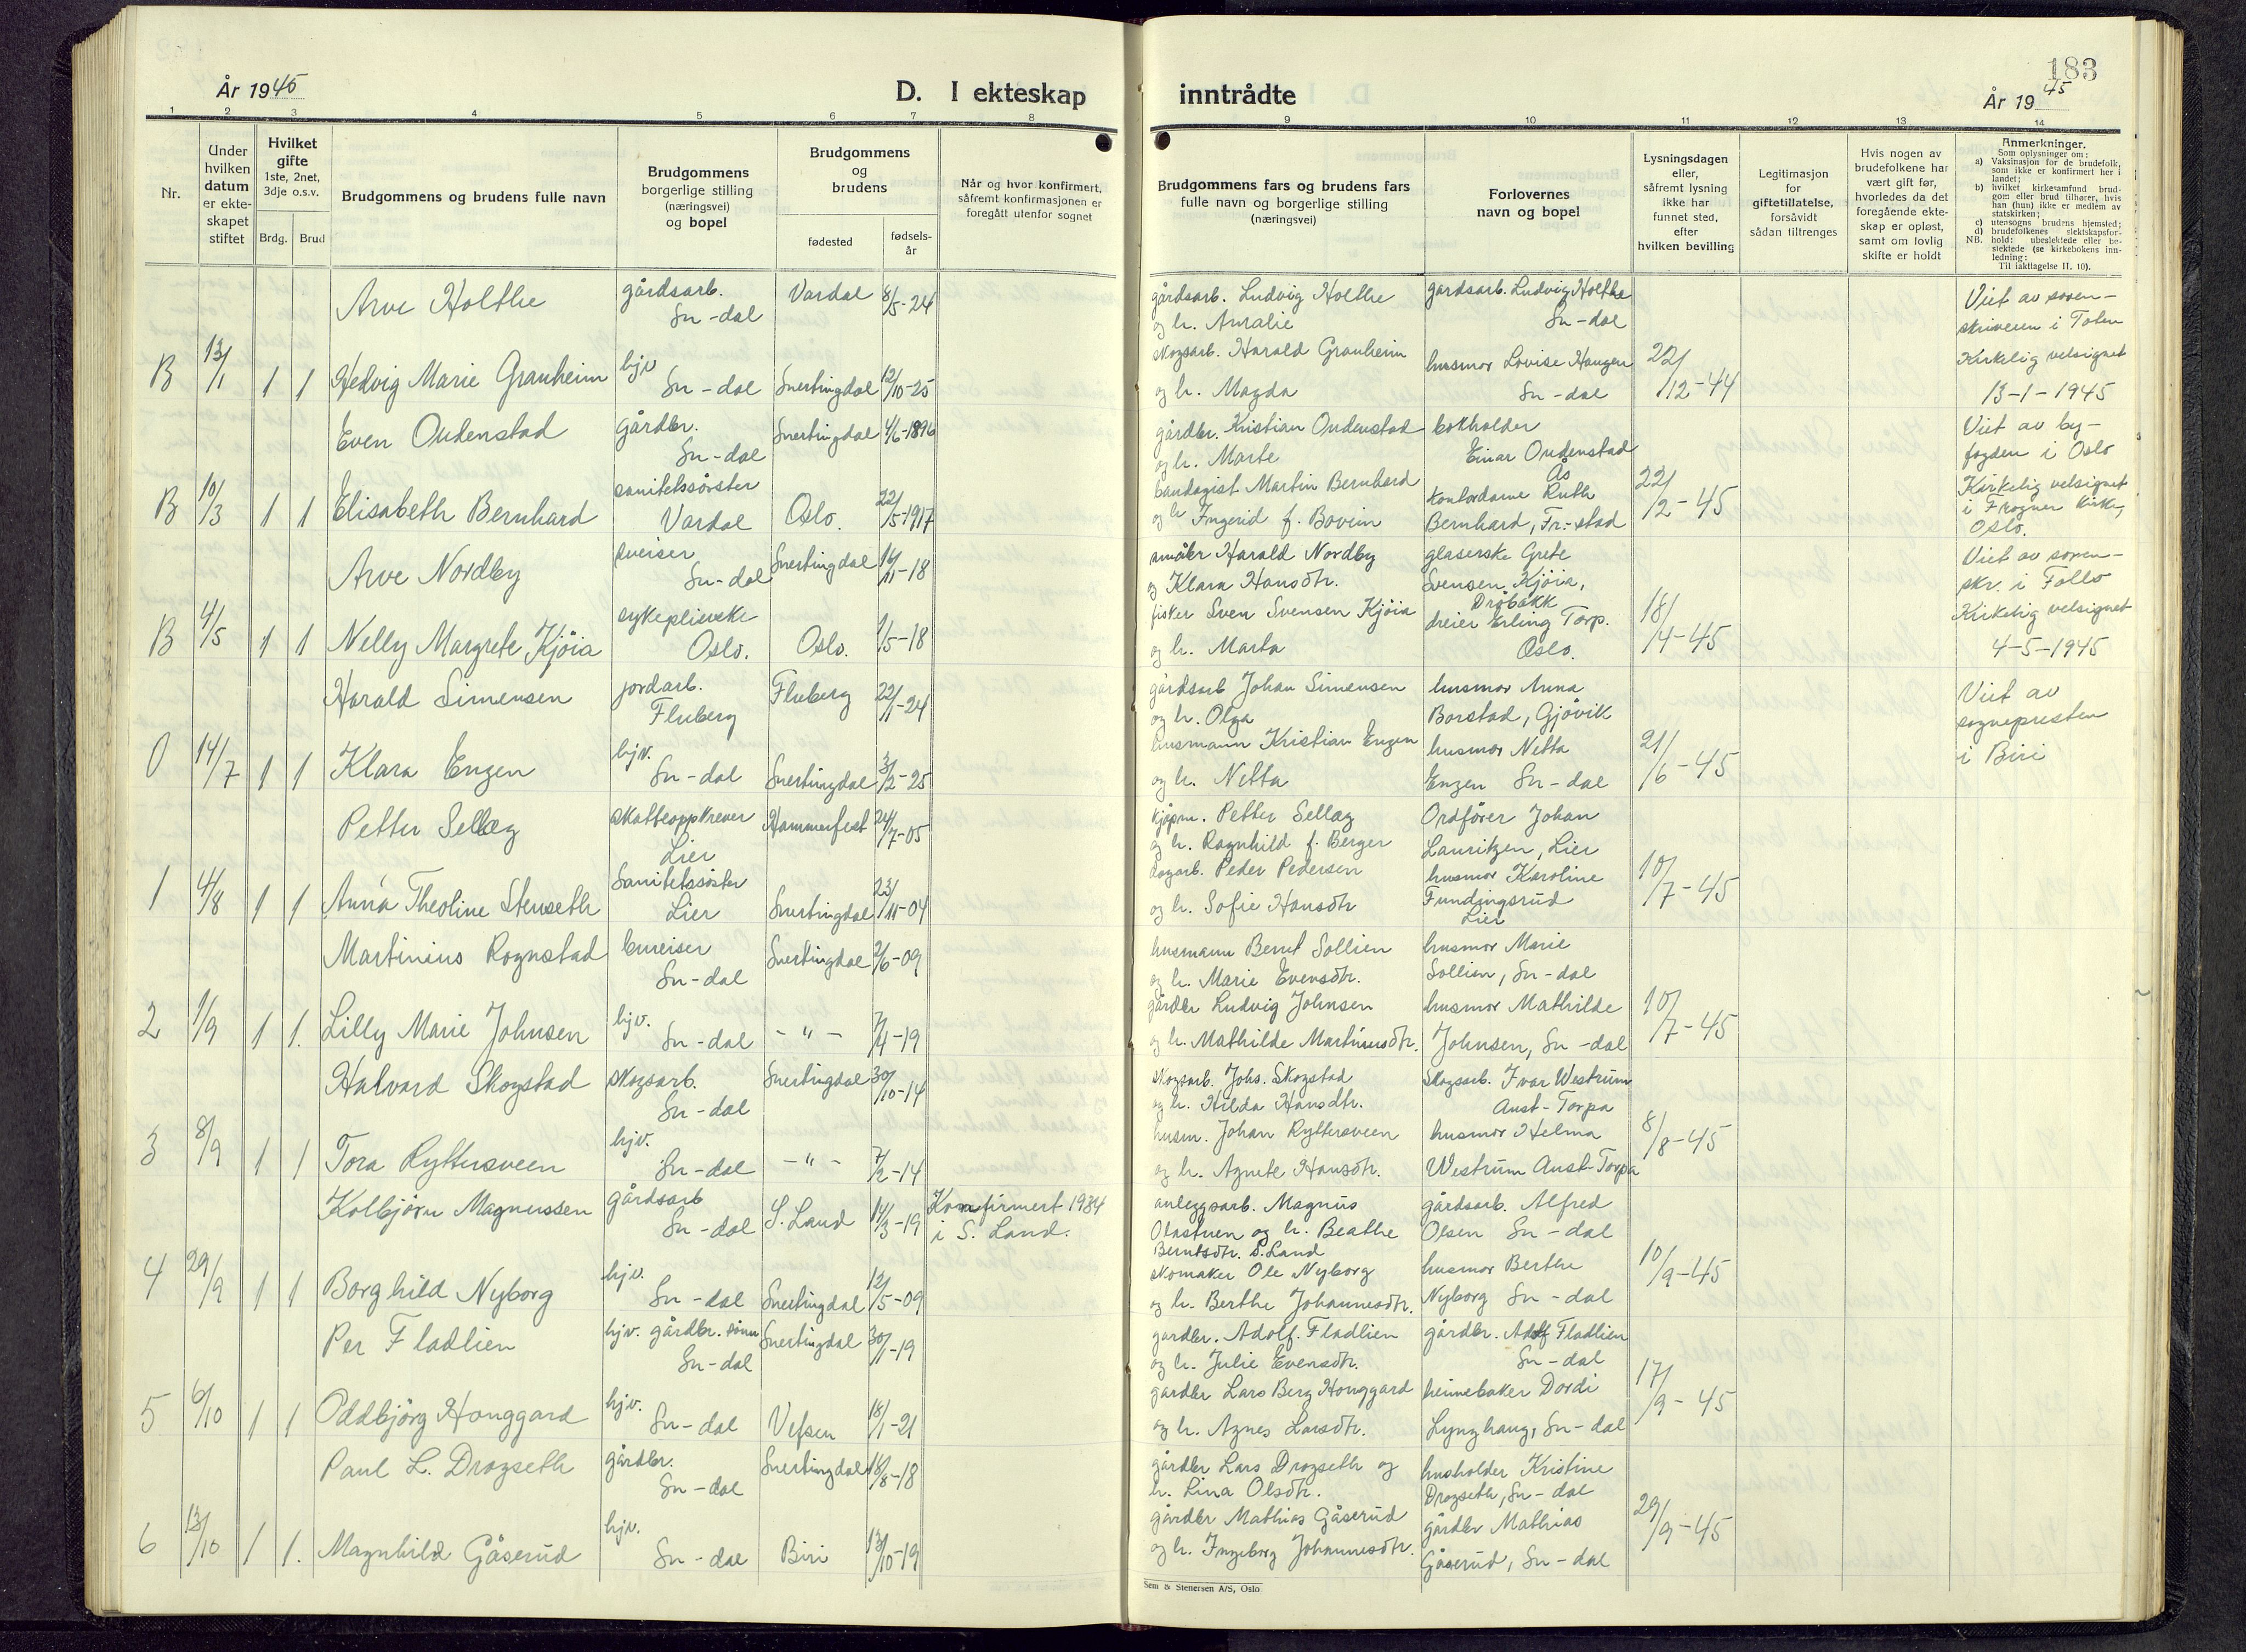 År 1945
D. I ekteskap
1 2 3 4 5 6 7 8
Nr.
Under hvilken datum er ekteskapet stiftet
Hvilket gifte 1ste, 2net, 3dje o.s.v.
Brdg. Brud
Brudgommens og brudens fulle navn
Brudgommens borgerlige stilling (næringsvei) og bopel
Brudgommens og brudens
fødested
fødselsår
Når og hvor konfirmert, såfremt konfirmasjonen er foregått utenfor sognet
Arve Holthe gårdsarb. Sn-dal Vardal 8/5-24
B 13/1 1 1 Hedvig Marie Granheim hjv Sn-dal Snertingdal 12/10-25
Even Oudenstad gårdbr. Sn-dal Snertingdal 4/6-1896
B 10/3 1 1 Elisabeth Bernhard sanitetssöster Vardal Oslo. 22/5-1917
Arve Nordby sveiser Sn-dal Snertingdal 14/11-18
B 4/5 1 1 Nelly Margrete Kjöia sykepleierske Oslo. Oslo. 1/5-18
Harald Simensen jordarb. Fluberg Fluberg 22/11-24
0 14/7 1 1 Klara Engen hjv. Sn-dal Snertingdal 3/2-25
Petter Sellæg skatteoppkrever Lier Hammerfest 24/7-05
1 4/8 1 1 Anna Theoline Stenseth Sanitetssöster Lier Snertingdal 23/11-04
Martinius Rognstad bureiser Sn-dal Snertingdal 2/6-09
2 1/9 1 1. Lilly Marie Johnsen hjv. Sn-dal -"- 7/4-19
Halvard Skogstad skogsarb. Sn-dal Snertingdal 30/10-14
3 8/9 1 1 Tora Ryttersveen hjv. Sn-dal -"- 7/2-14
Kolbjörn Magnussen gårdsarb Sn-dal S. Land 14/3-19 Konfirmert 1934 i S. Land.
4 29/9 1 1 Borghild Nyborg hjv. Sn-dal Snertingdal 12/5-09
Per Fladlien hjv. gårdbr. sönn Sn-dal Snertingdal 30/11-19
5 6/10 1 1 Oddbjörg Honggard hjv. Sn-dal Vefsen 18/1-21
Paul L. Drogseth gårdbr. Sn-dal Snertingdal 18/8-18
6 13/10 1 1. Magnhild Gåserud hjv. Sn-dal Biri 13/10-19
183
inntrådte
År 1945
9 10 11 12 13 14
Brudgommens fars og brudens fars fulle navn og borgerlige stilling (næringsvei)
Forlovernes navn og bopel
Lysningsdagen eller, såfremt lysning ikke har funnet sted, efter hvilken bevilling
Legitimasjon for giftetillatelse, forsåvidt sådan tiltrenges
Hvis nogen av brudefolkene har vært gift før, hvorledes da det foregående ekteskap er opløst, samt om lovlig skifte er holdt
Anmerkninger.
Som oplysninger om:
a) Vaksinasjon for de brudefolk, som ikke er konfirmert her i landet;
b) hvilket kirkesamfund brudgom eller brud tilhører, hvis han (hun) ikke er medlem av statskirken;
c) utensogns brudens hjemsted;
d) brudefolkenes slektskapsforhold: ubeslektede eller beslektede (se kirkebokens innledning:
NB.
Til iakttagelse II. 10).
gårdsarb. Ludvig Holthe gårdsarb. Ludvig Holthe Viet av soren-
og h. Amalie Sn-dal skriveren i Toten
skogsarb. Harald Granheim husmor Lovise Haugen 22/12-44 Kirkelig velsignet
og h. Magda Sn-dal 13-1-1945
gårdbr. Kristian Oudenstad bokholder Viet av by-
og h. Marte Einar Oudenstad Ås fogden i Oslo
bandagist Martin Bernhard kontordame Ruth 22/2-45 Kirkelig velsignet i Frogner kirke,
og h Ingerid f. Bovim Bernhard, Fr.-stad Oslo.
småbr Harald Nordby glaserske Grete Viet av soren-
og Klara Hansdtr. Svensen Kjöia, Dröbakk skr. i Follo
fisker Sven Svensen Kjöia dreier Erling Torp. 18/4-45 Kirkelig velsignet
og h. Marta Oslo. 4-5-1945
gårdsarb Johan Simensen husmor Anna Viet av
og h. Olga Borstad, Gjövik sognepresten
husmann Kristian Engen husmor Netta 21/6-45 i Biri
og h. Netta Engen Sn-dal
kjöpm. Petter Sellæg Ordförer Johan
og h. Ragnhild f. Berger Lauritzen, Lier
dagarb. Peder Pedersen husmor Karoline 10/7-45
og h. Sofie Hansdtr Fundingsrud Lier
husmann Bernt Sollien husmor Marie
og h. Marie Evensdtr. Sollien, Sn-dal
gårdbr Ludvig Johnsen husmor Mathilde 10/7-45
og h. Mathilde Martinusdtr. Johnsen, Sn-dal
skogsarb. Johs. Skogstad Skogsarb. Ivar Westrum
og h. Hilda Hansdtr. Aust-Torpa
husm. Johan Ryttersveen husmor Helma 8/8-45
og h. Agnete Hansdtr. Westrum Aust-Torpa
anleggsarb. Magnus gårdsarb. Alfred
Olastuen og h. Beathe Olsen Sn-dal
Berntsdtr. S. Land
skomaker Ole Nyborg husmor Berthe 10/9-45
og h. Berthe Johannesdtr. Nyborg Sn-dal
gardbr. Adolf. Fladlien gårdbr. Adolf Fladlien
og h. Julie Evensdtr. Sn-dal
gardbr Lars Berg Honggard heimebaker Dordi 17/9-45
og h. Agnes Larsdtr. Lynghaug, Sn-dal
gårdbr Lars Drogseth og husholder Kristine
h. Lina Olsdtr. Drogseth, Sn-dal
gårdbr Mathias Gåserud gårdbr Mathias 29/9-45
og h. Ingeborg Johannesdtr. Gåserud, Sn-dal
Sem & Stenersen A/S, Oslo